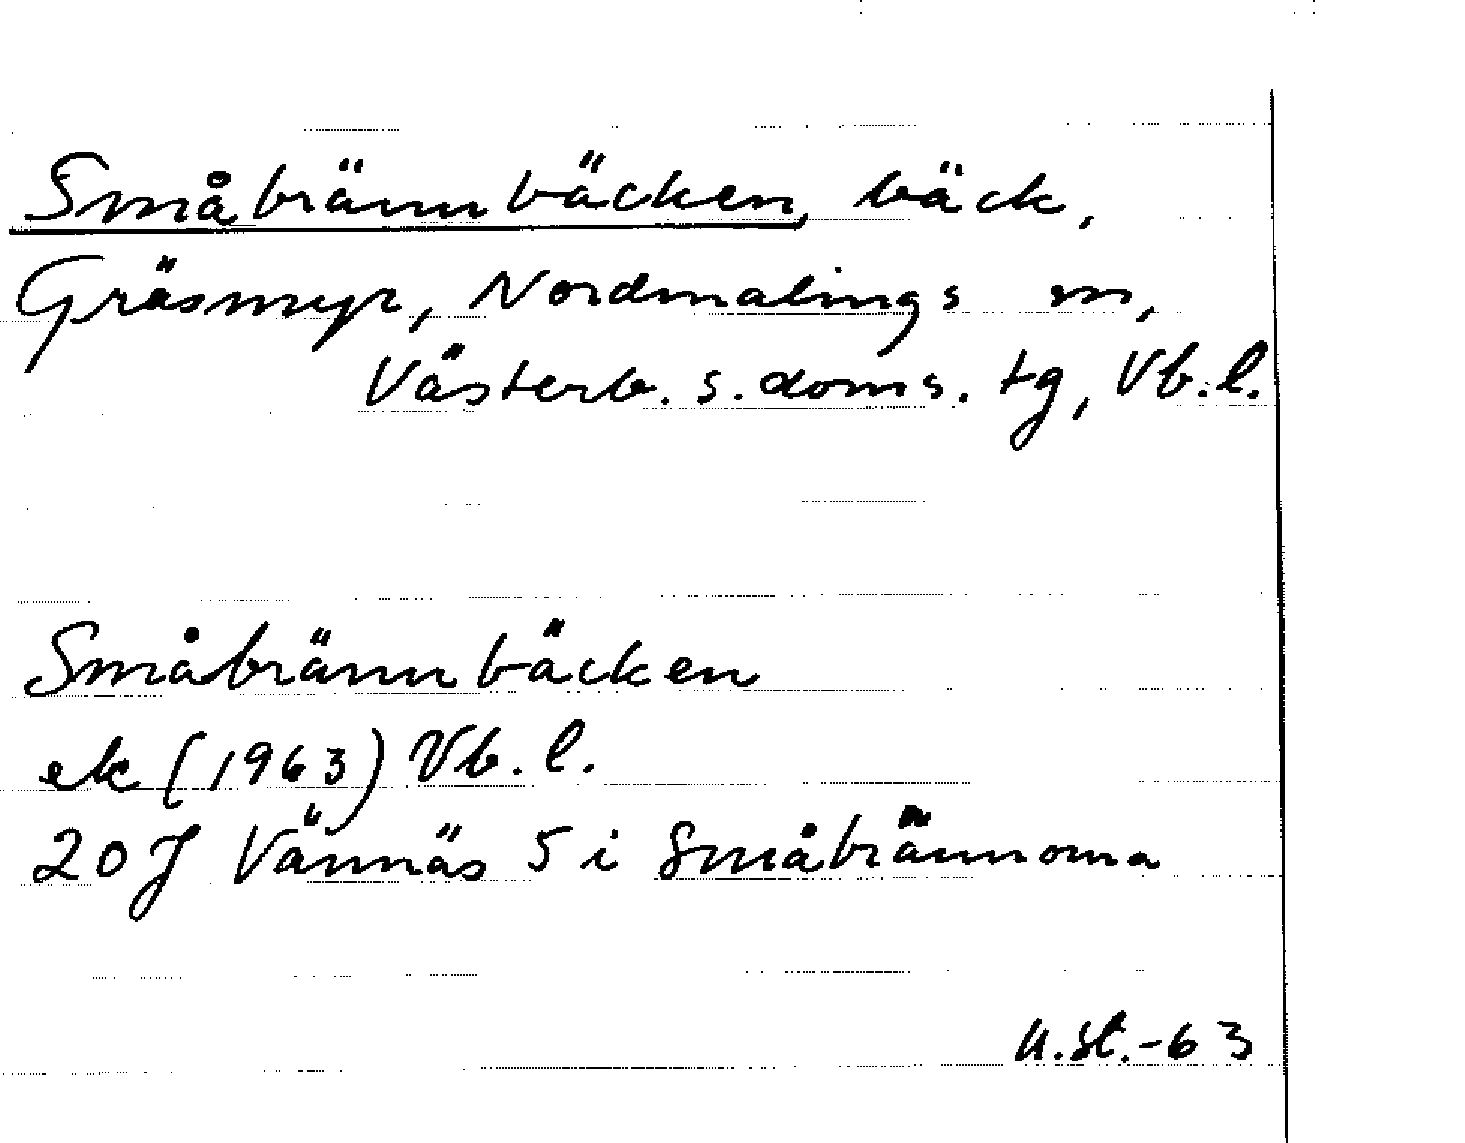 Småbrännbäcken, bäck,
Gräsmyr, Nordmalings sn,
Västerb. s. doms. tg, Vb. l.
Småbrännbäcken
ek (1963) Vb. l.
20 J Vännäs 5 i Småbrännorna
U.St.-63